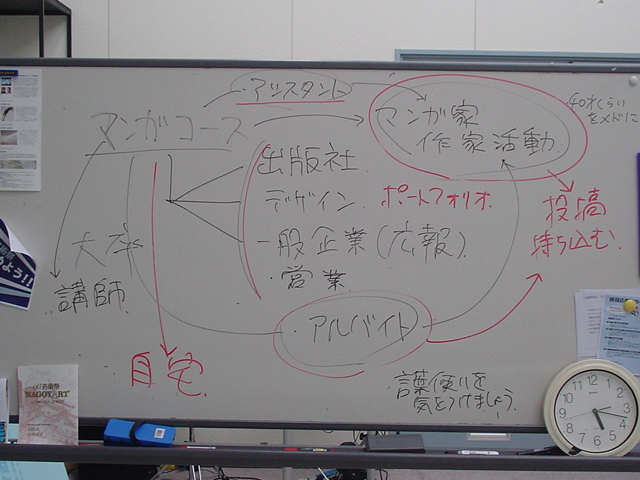 アシスタント
マンガコース
マンガ家
作家活動
40才くらい
をメドに
出版社
デザイン
ポートフォリオ
一般企業(広報)
・営業
投稿
持ち込む
大卒
講師
・アルバイト
自宅
言葉使いを
気をつけましょう
NAGOYART
よう!!
12
1
2
3
4
5
6
7
8
9
10
11